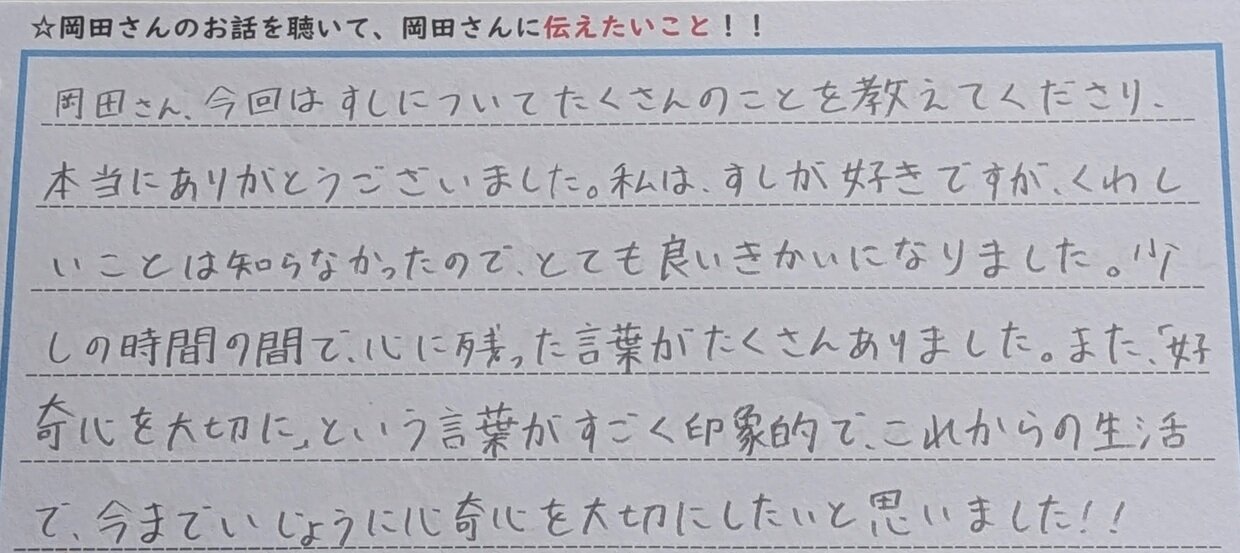 ☆岡田さんのお話を聴いて、岡田さんに伝えたいこと！！
岡田さん、今回はすしについてたくさんのことを教えてくださり、
本当にありがとうございました。私は、すしが好きですが、くわし
いことは知らなかったので、とても良いきかいになりました。少
しの時間の間で、心に残った言葉がたくさんありました。また、「好
奇心を大切に」という言葉がすごく印象的で、これからの生活
で、今までいじょうに心奇心を大切にしたいと思いました！！